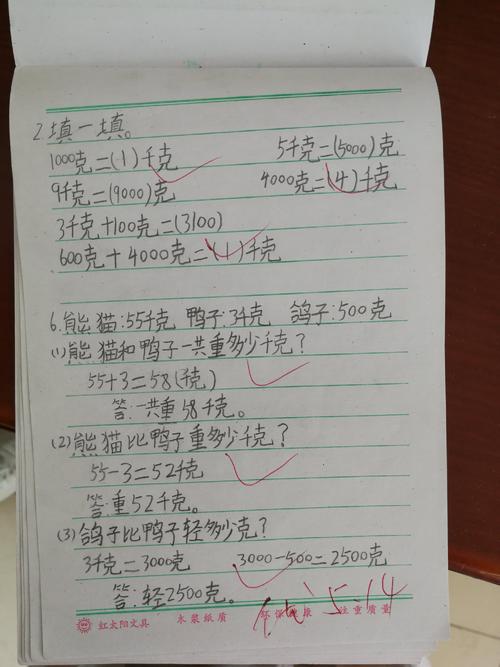 2.填一填。
1000克=(1)千克 5千克=(5000)克
9千克=(9000)克 4000克=(4)千克
3千克+100克=(3100)
600克+4000克=(1)千克
6.熊猫:55千克 鸭子:3千克 鸽子:500克
(1)熊猫和鸭子一共重多少千克?
55+3=58(千克)
答:一共重58千克。
(2)熊猫比鸭子重多少千克?
55-3=52千克
答:重52千克。
(3)鸽子比鸭子轻多少克?
3千克=3000克 3000-500=2500克
答:轻2500克。
5.14
红太阳文具 木浆纸质 环保健康 注重质量